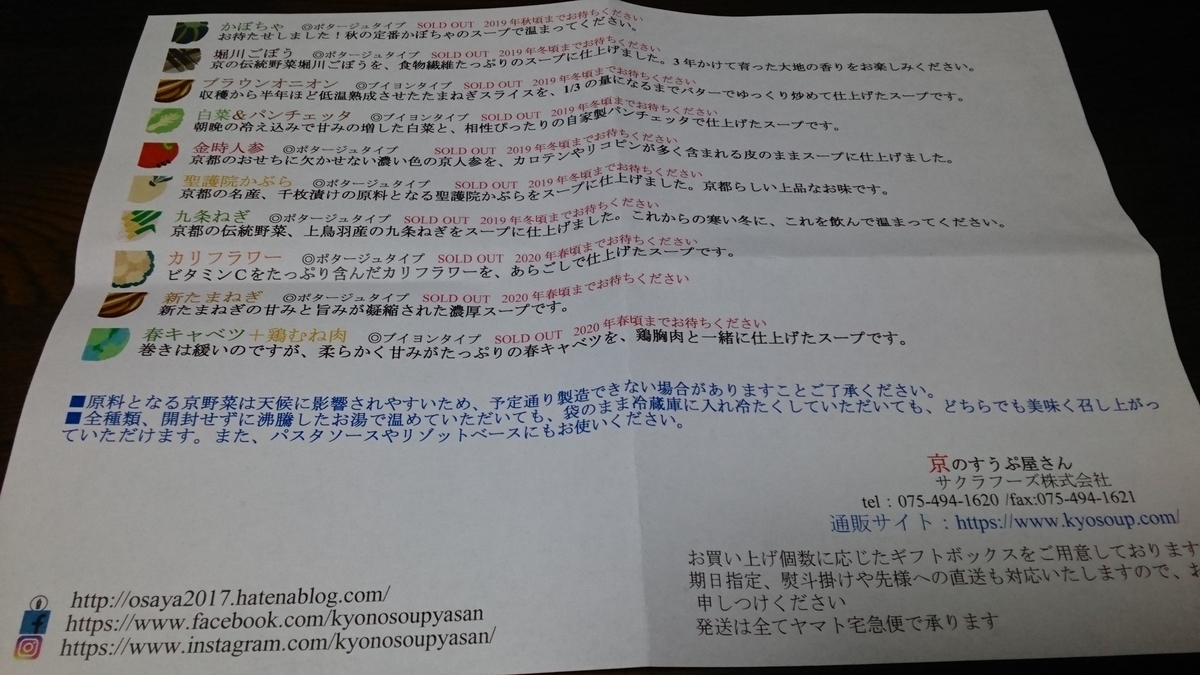 かぼちゃ ◎ポタージュタイプ SOLD OUT 2019年秋頃までお待ちください
お待たせしました！秋の定番かぼちゃのスープで温まってください。
堀川ごぼう ◎ポタージュタイプ SOLD OUT 2019年冬頃までお待ちください
京の伝統野菜堀川ごぼうを、食物繊維たっぷりのスープに仕上げました。3年かけて育った大地の香りをお楽しみください。
ブラウンオニオン ◎ブイヨンタイプ SOLD OUT 2019年冬頃までお待ちください
収穫から半年ほど低温熟成させたたまねぎスライスを、1/3の量になるまでバターでゆっくり炒めて仕上げたスープです。
白菜&パンチェッタ ◎ブイヨンタイプ SOLD OUT 2019年冬頃までお待ちください
朝晩の冷え込みで甘みの増した白菜と、相性ぴったりの自家製パンチェッタで仕上げたスープです。
金時人参 ◎ポタージュタイプ SOLD OUT 2019年冬頃までお待ちください
京都のおせちに欠かせない濃い色の京人参を、カロテンやリコピンが多く含まれる皮のままスープに仕上げました。
聖護院かぶら ◎ポタージュタイプ SOLD OUT 2019年冬頃までお待ちください
京都の名産、千枚漬けの原料となる聖護院かぶらをスープに仕上げました。京都らしい上品なお味です。
九条ねぎ ◎ポタージュタイプ SOLD OUT 2019年冬頃までお待ちください
京都の伝統野菜、上鳥羽産の九条ねぎをスープに仕上げました。これからの寒い冬に、これを飲んで温まってください。
カリフラワー ◎ポタージュタイプ SOLD OUT 2020年春頃までお待ちください
ビタミンCをたっぷり含んだカリフラワーを、あらごしで仕上げたスープです。
新たまねぎ ◎ポタージュタイプ SOLD OUT 2020年春頃までお待ちください
新たまねぎの甘みと旨みが凝縮された濃厚スープです。
春キャベツ＋鶏むね肉 ◎ブイヨンタイプ SOLD OUT 2020年春頃までお待ちください
巻きは緩いのですが、柔らかく甘みがたっぷりの春キャベツを、鶏胸肉と一緒に仕上げたスープです。
■原料となる京野菜は天候に影響されやすいため、予定通り製造できない場合がありますことご了承ください。
■全種類、開封せずに沸騰したお湯で温めていただいても、袋のまま冷蔵庫に入れ冷たくしていただいても、どちらでも美味く召し上がっ
ていただけます。また、パスタソースやリゾットベースにもお使いください。
京のすうぷ屋さん
サクラフーズ株式会社
tel：075-494-1620 /fax:075-494-1621
通販サイト：https://www.kyosoup.com/
お買い上げ個数に応じたギフトボックスをご用意しております
期日指定、熨斗掛けや先様への直送も対応いたしますので、お
申しつけください
発送は全てヤマト宅急便で承ります
http://osaya2017.hatenablog.com/
https://www.facebook.com/kyonosoupyasan
https://www.instagram.com/kyonosoupyasan/